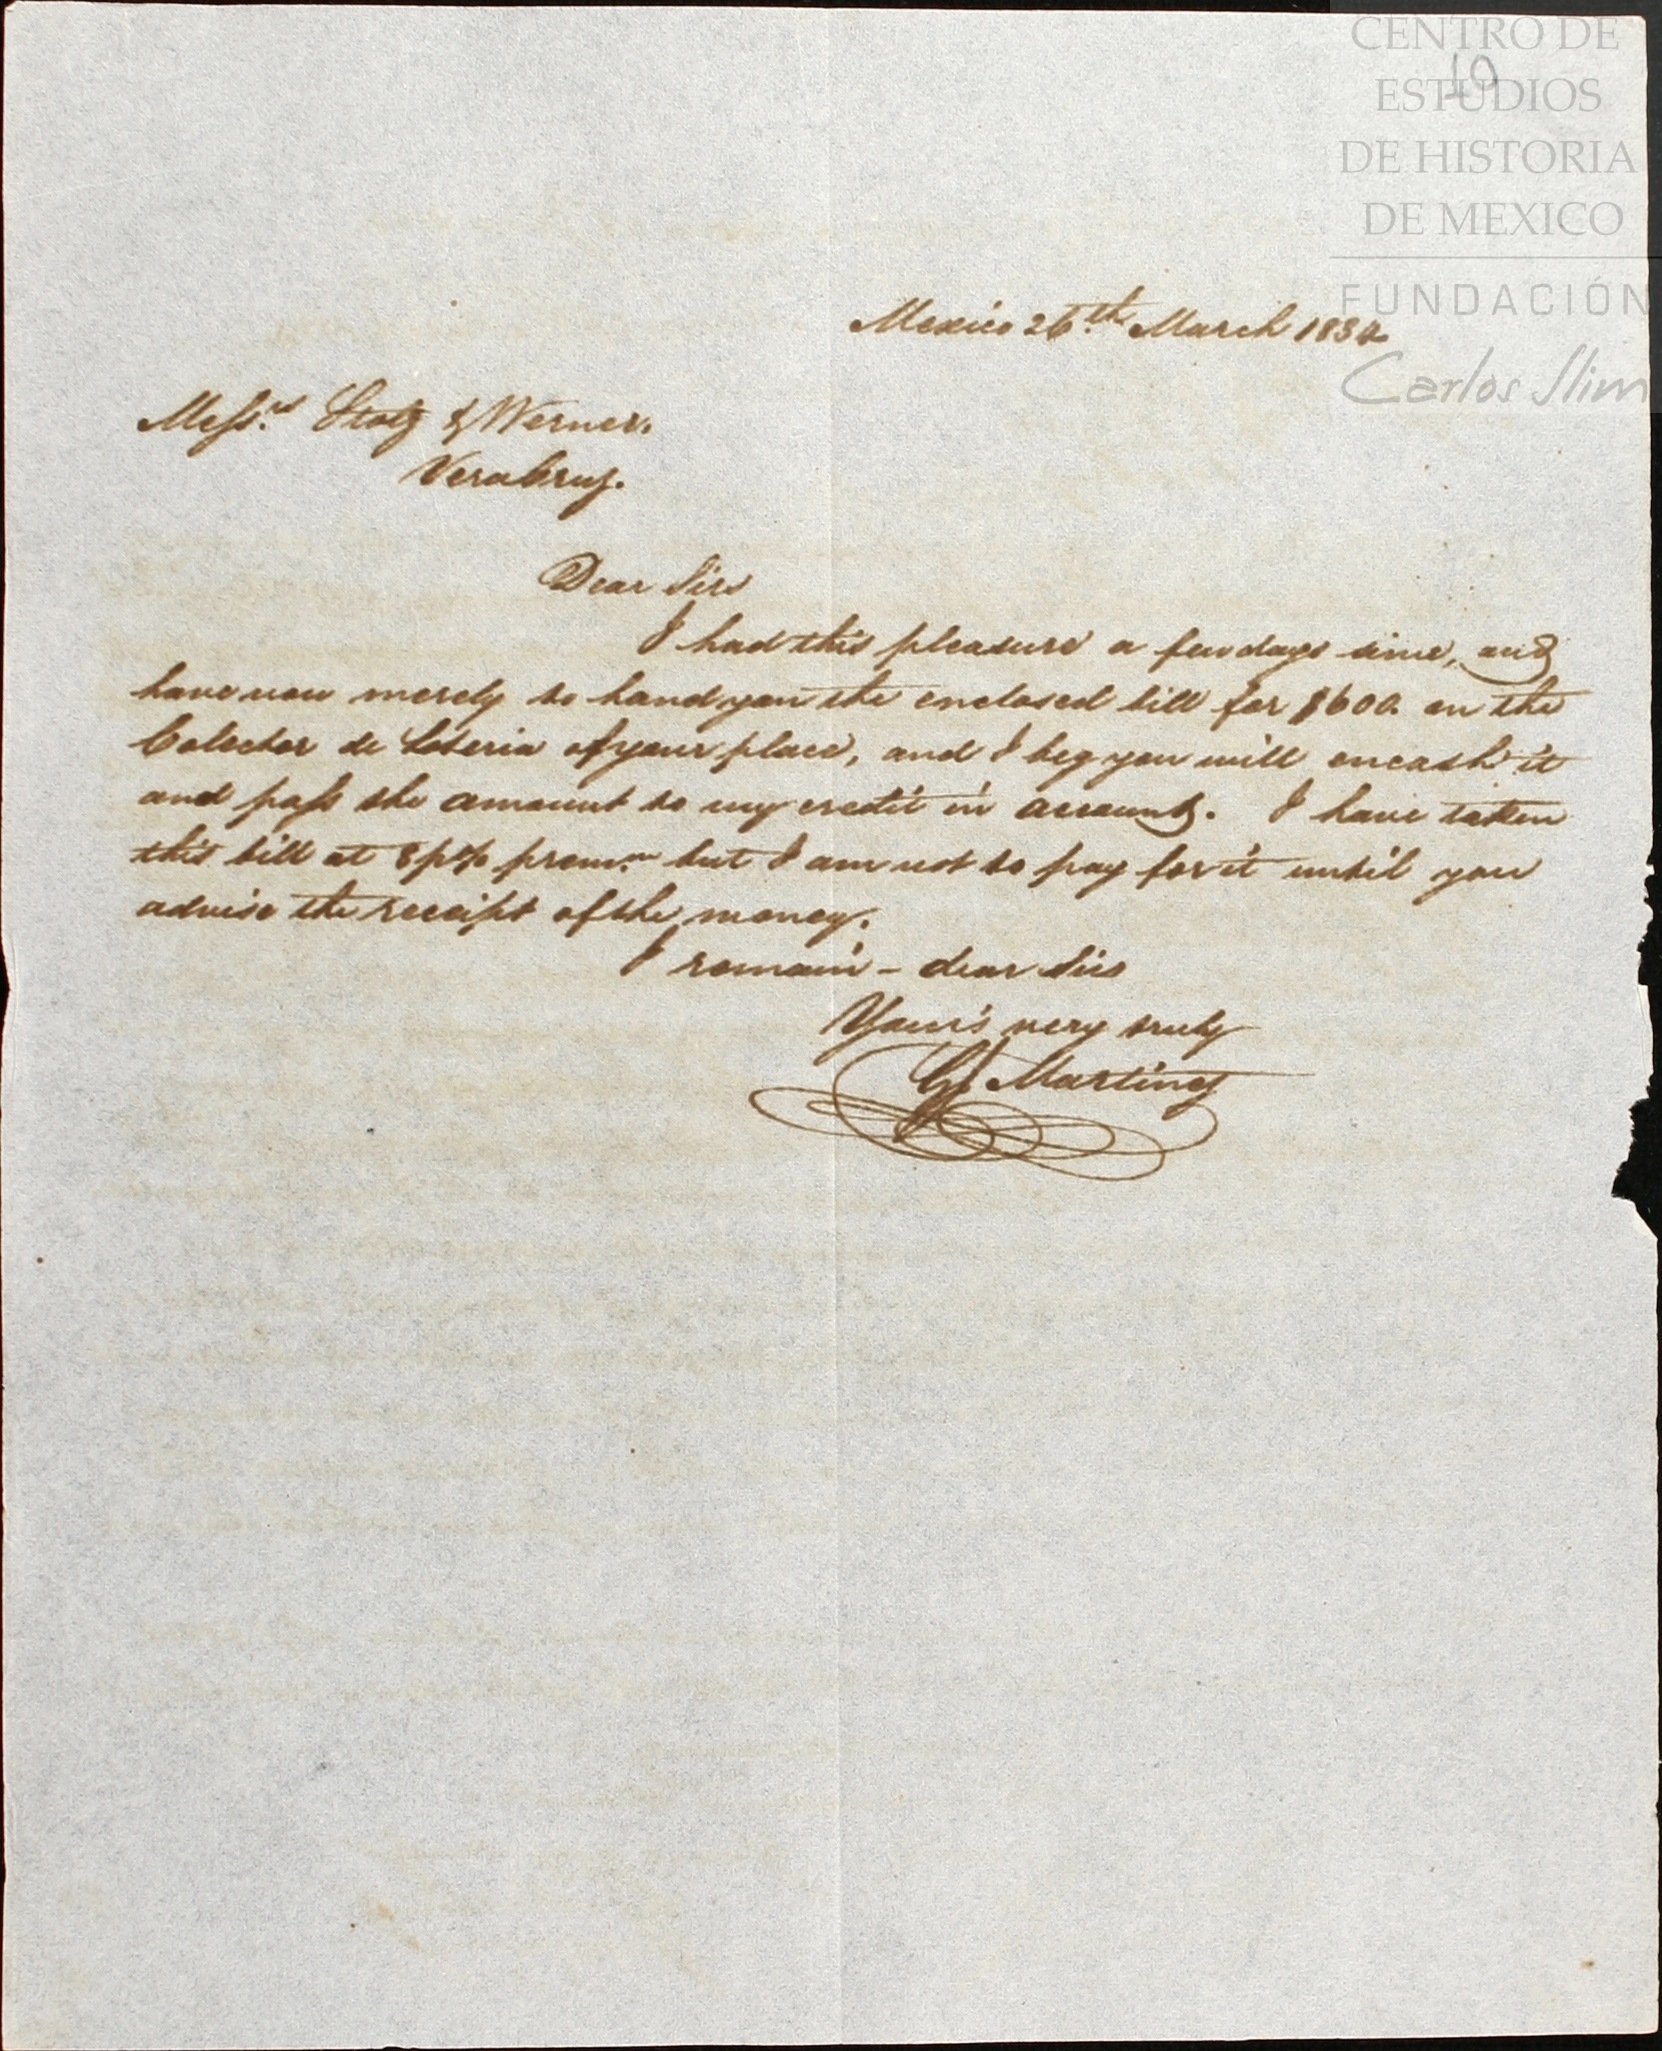 CENTRO DE
10
ESTUDIOS
DE HISTORIA
DE MEXICO
FUNDACIÓN
Carlos Slim
Mexico 26th March 183
Messrs Stolz & Werner.
Vera Cruz.
Dear Sirs
I had this pleasure a few days since, and
have now merely to hand you the enclosed bill for $600. on the
Colector de Loteria of your place, and I beg you will encash it
and pass the amount to my credit in account. I have taken
this bill at 8 p% prem.m but I am not to pay for it until you
advise the receipt of the money.
I remain - dear Sirs
Your's very truly
G Martinez